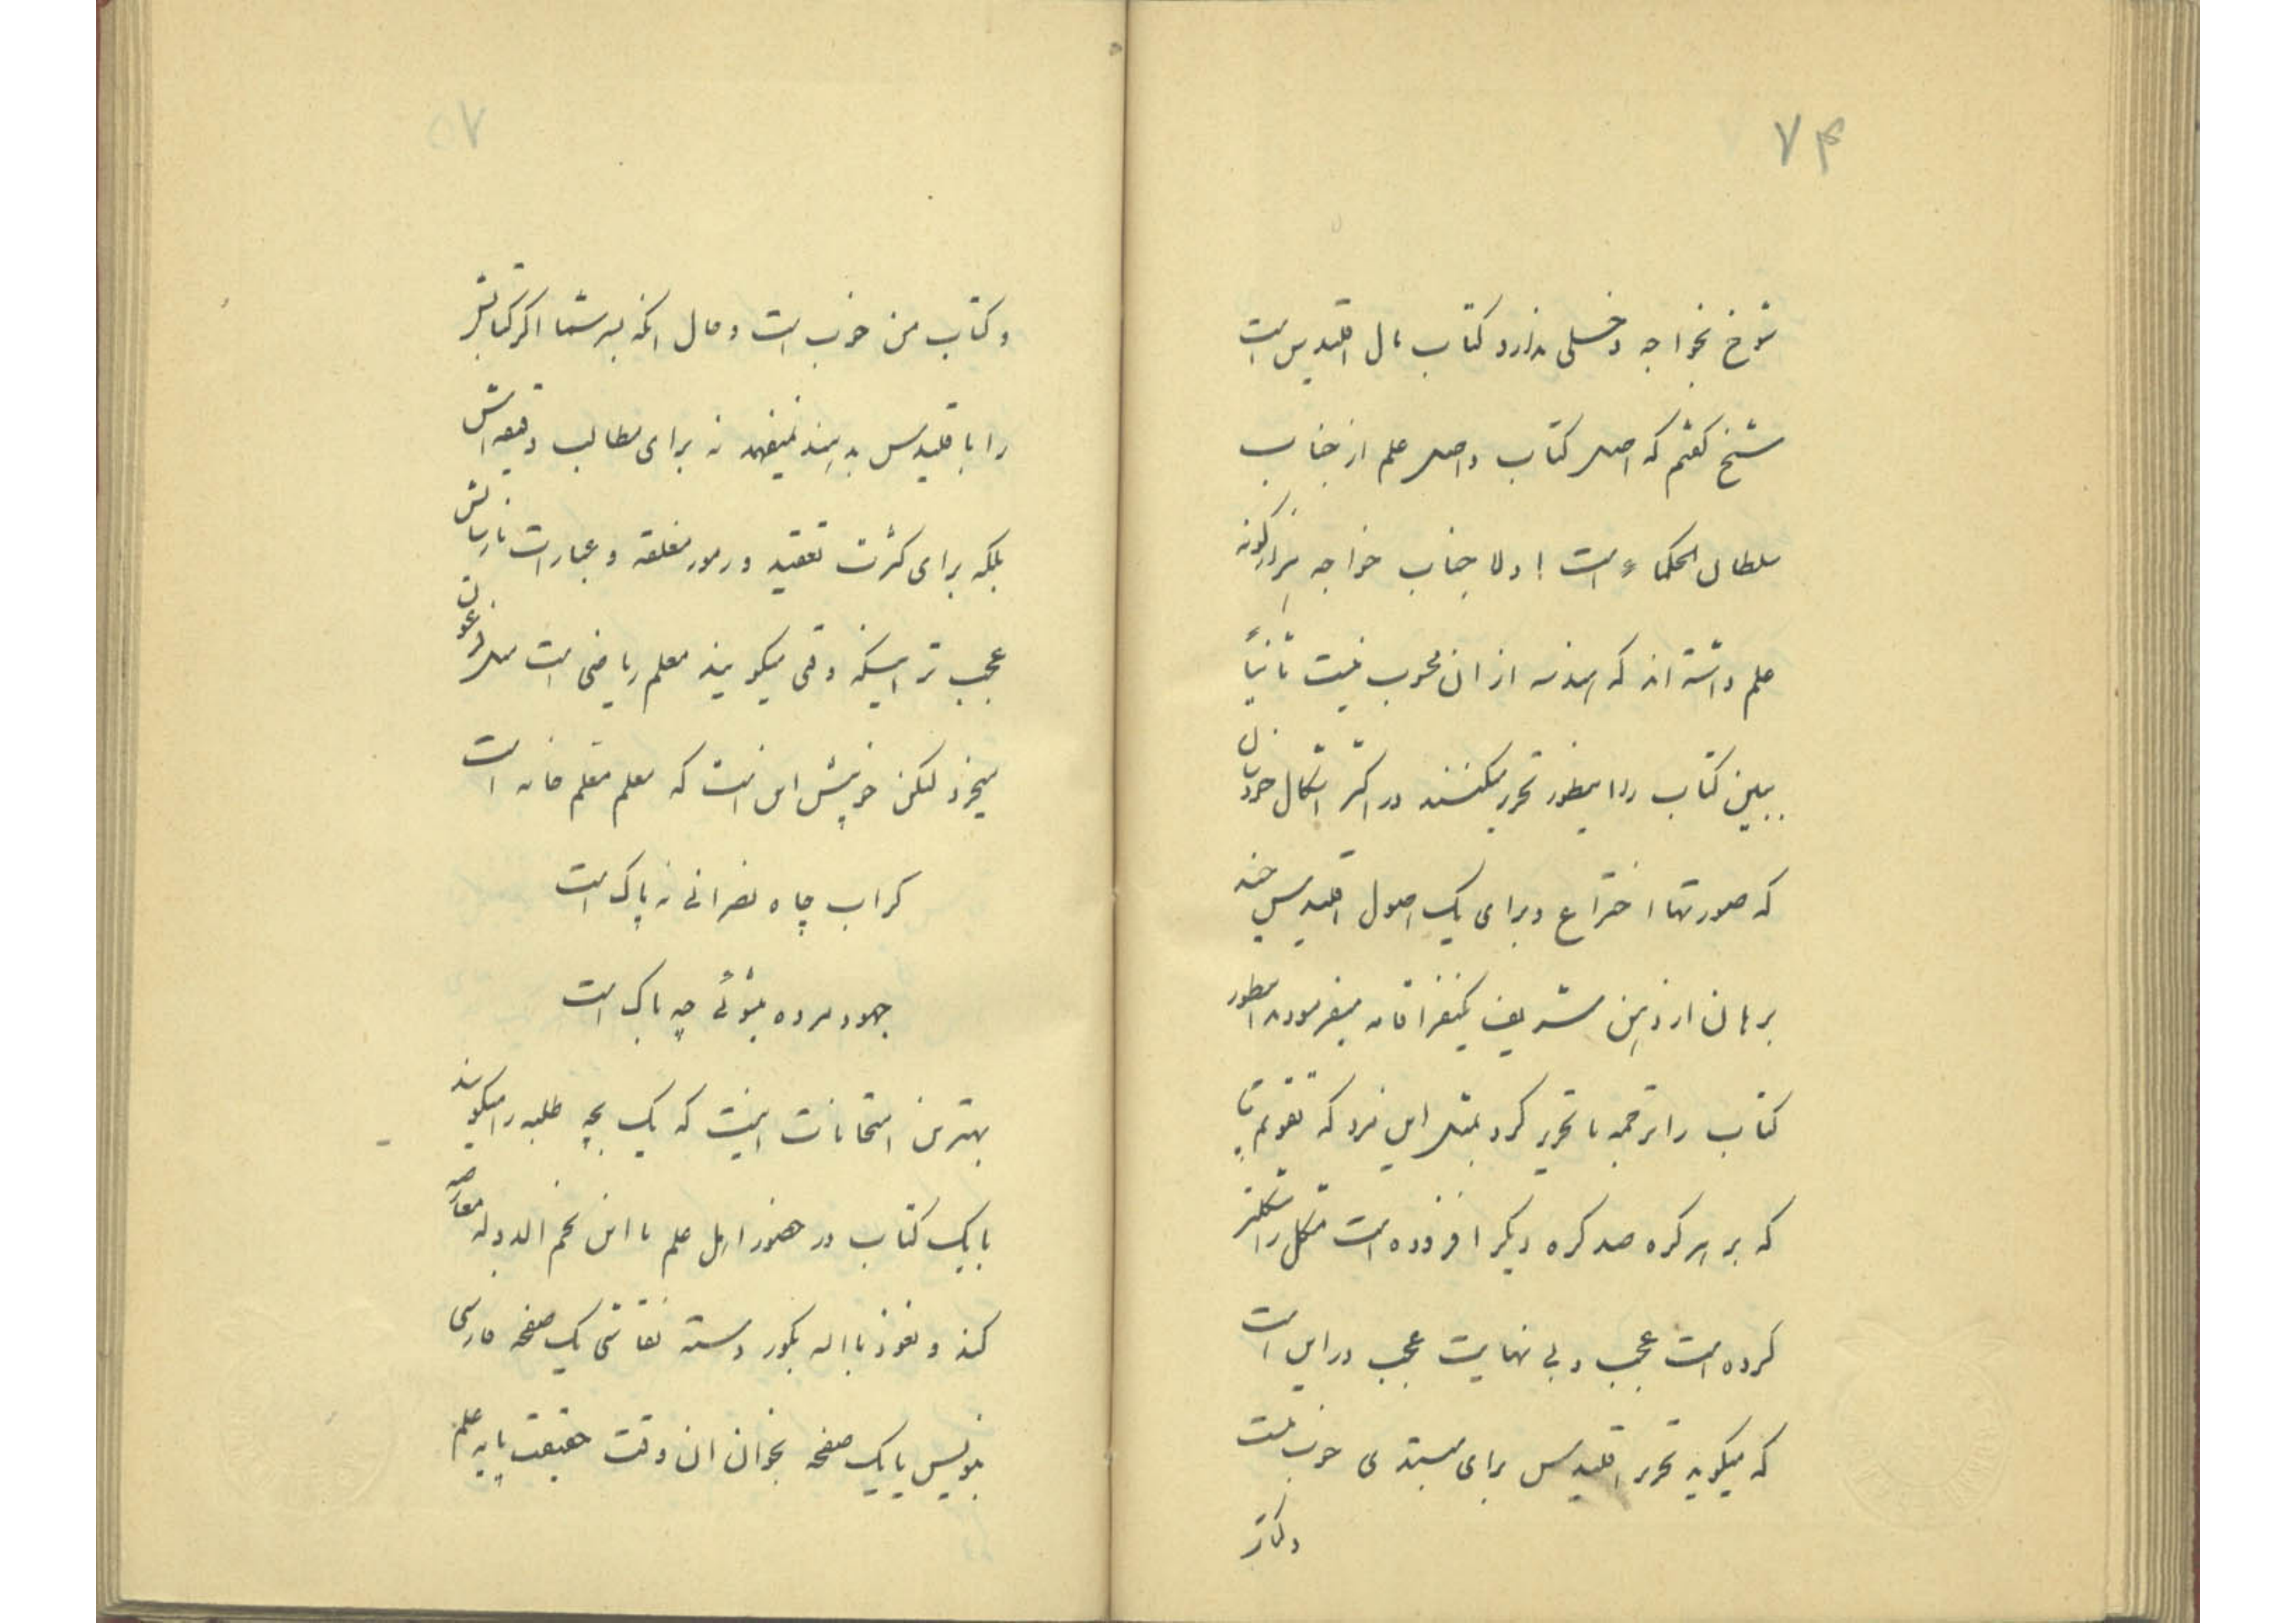 ۷۴
شوخ بخواجه دخلی ندارد کتاب مال اقلیدس است
شیخ گفتم که اصل کتاب و اصل علم از جناب
سلطان الحکماء است اولا جناب خواجه هزار گونه
علم داشته اند که هندسه از ان محسوب نیست ثانیاً
ببین کتاب را اینطور تحریر میکنند در اکثر اشکال خودشان
که صورتها اختراع و برای یک اصول اقلیدس چند
برهان از ذهن شریف یکنفر اقامه میفرمودند اینطور
کتاب را ترجمه یا تحریر کرد نه مثل این مرد که
که بر هر گره صد گره دیگر افزوده است مشکل را مشکلتر
کرده است عجب و بی نهایت عجب در این است
که میگوید تحریر اقلیدس برای مبتدی خوب نیست
و کتاب
۷۵
و کتاب من خوب است و حال انکه بسر شما اگر کتابش
را با قلیدس بدهند نمیفهمد نه برای مطالب دقیقه اش
بلکه برای کثرت تعقید و رموز مغلقه و عبارات نارسایش
عجب تر اینکه وقتی میگویند معلم ریاضی است مثل فرعون
میخرد لکن خوبیش این است که معلم معلم خانه است
گر اب چاه نصرانی نه پاک است
جهود مرده میشوئی چه باک است
بهترین امتحانات اینست که یک بچه طلبه را میگویند
با یک کتاب در حضور اهل علم با این نجم الدوله معارضه
کند و نعوذ باالله بگور دسته نقاشی یک صفحه فارسی
بنویس یا یک صفحه بخوان ان وقت حقیقت پایه علم